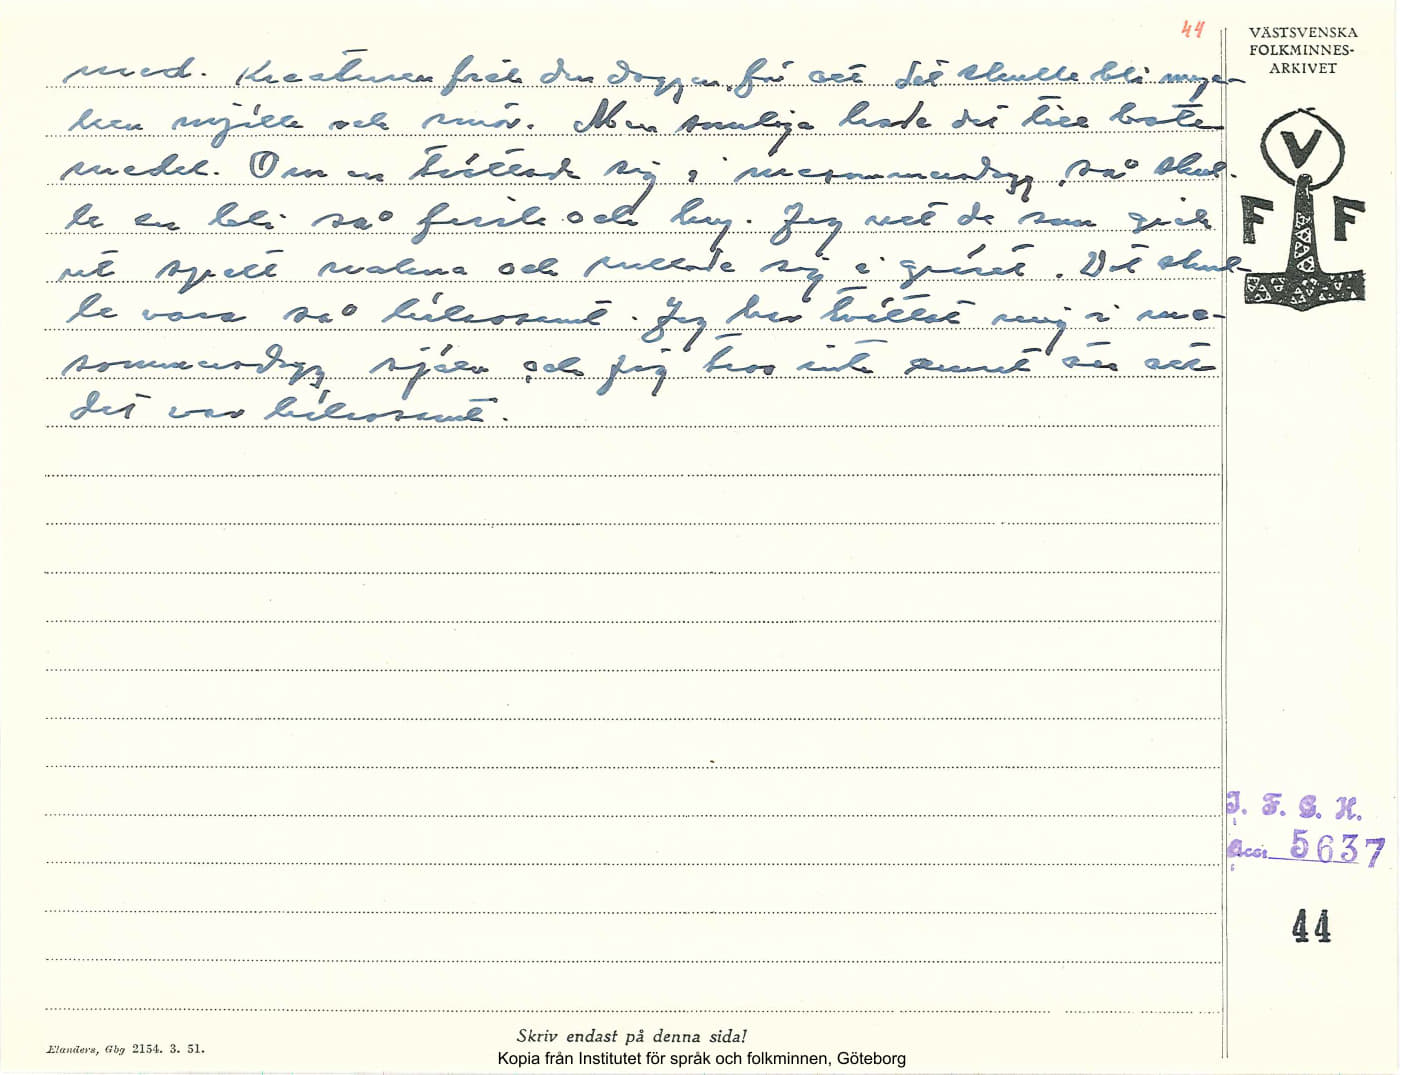 44
VÄSTSVENSKA
FOLKMINNES-
ARKIVET
med. Kreaturen fick den daggen för att det skulle bli myc-
ken mjölk och smör. Men somliga hade det till bote-
medel. Om en tvättade sig i mesommersdagg, så skul-
le en bli så frisk och kry. Jag vet de som gick
ut spett nakna och rullade sig i gräset. Det skul-
le vara så hälsosamt. Jag har tvättat mig i me-
sommersdagg själv och jag tror inte annat än att
det var hälsosamt.
V
F F
I. F. G. H.
Acc. 5637
44
Skriv endast på denna sida!
Elanders, Gbg 2154. 3. 51.
Kopia från Institutet för språk och folkminnen, Göteborg